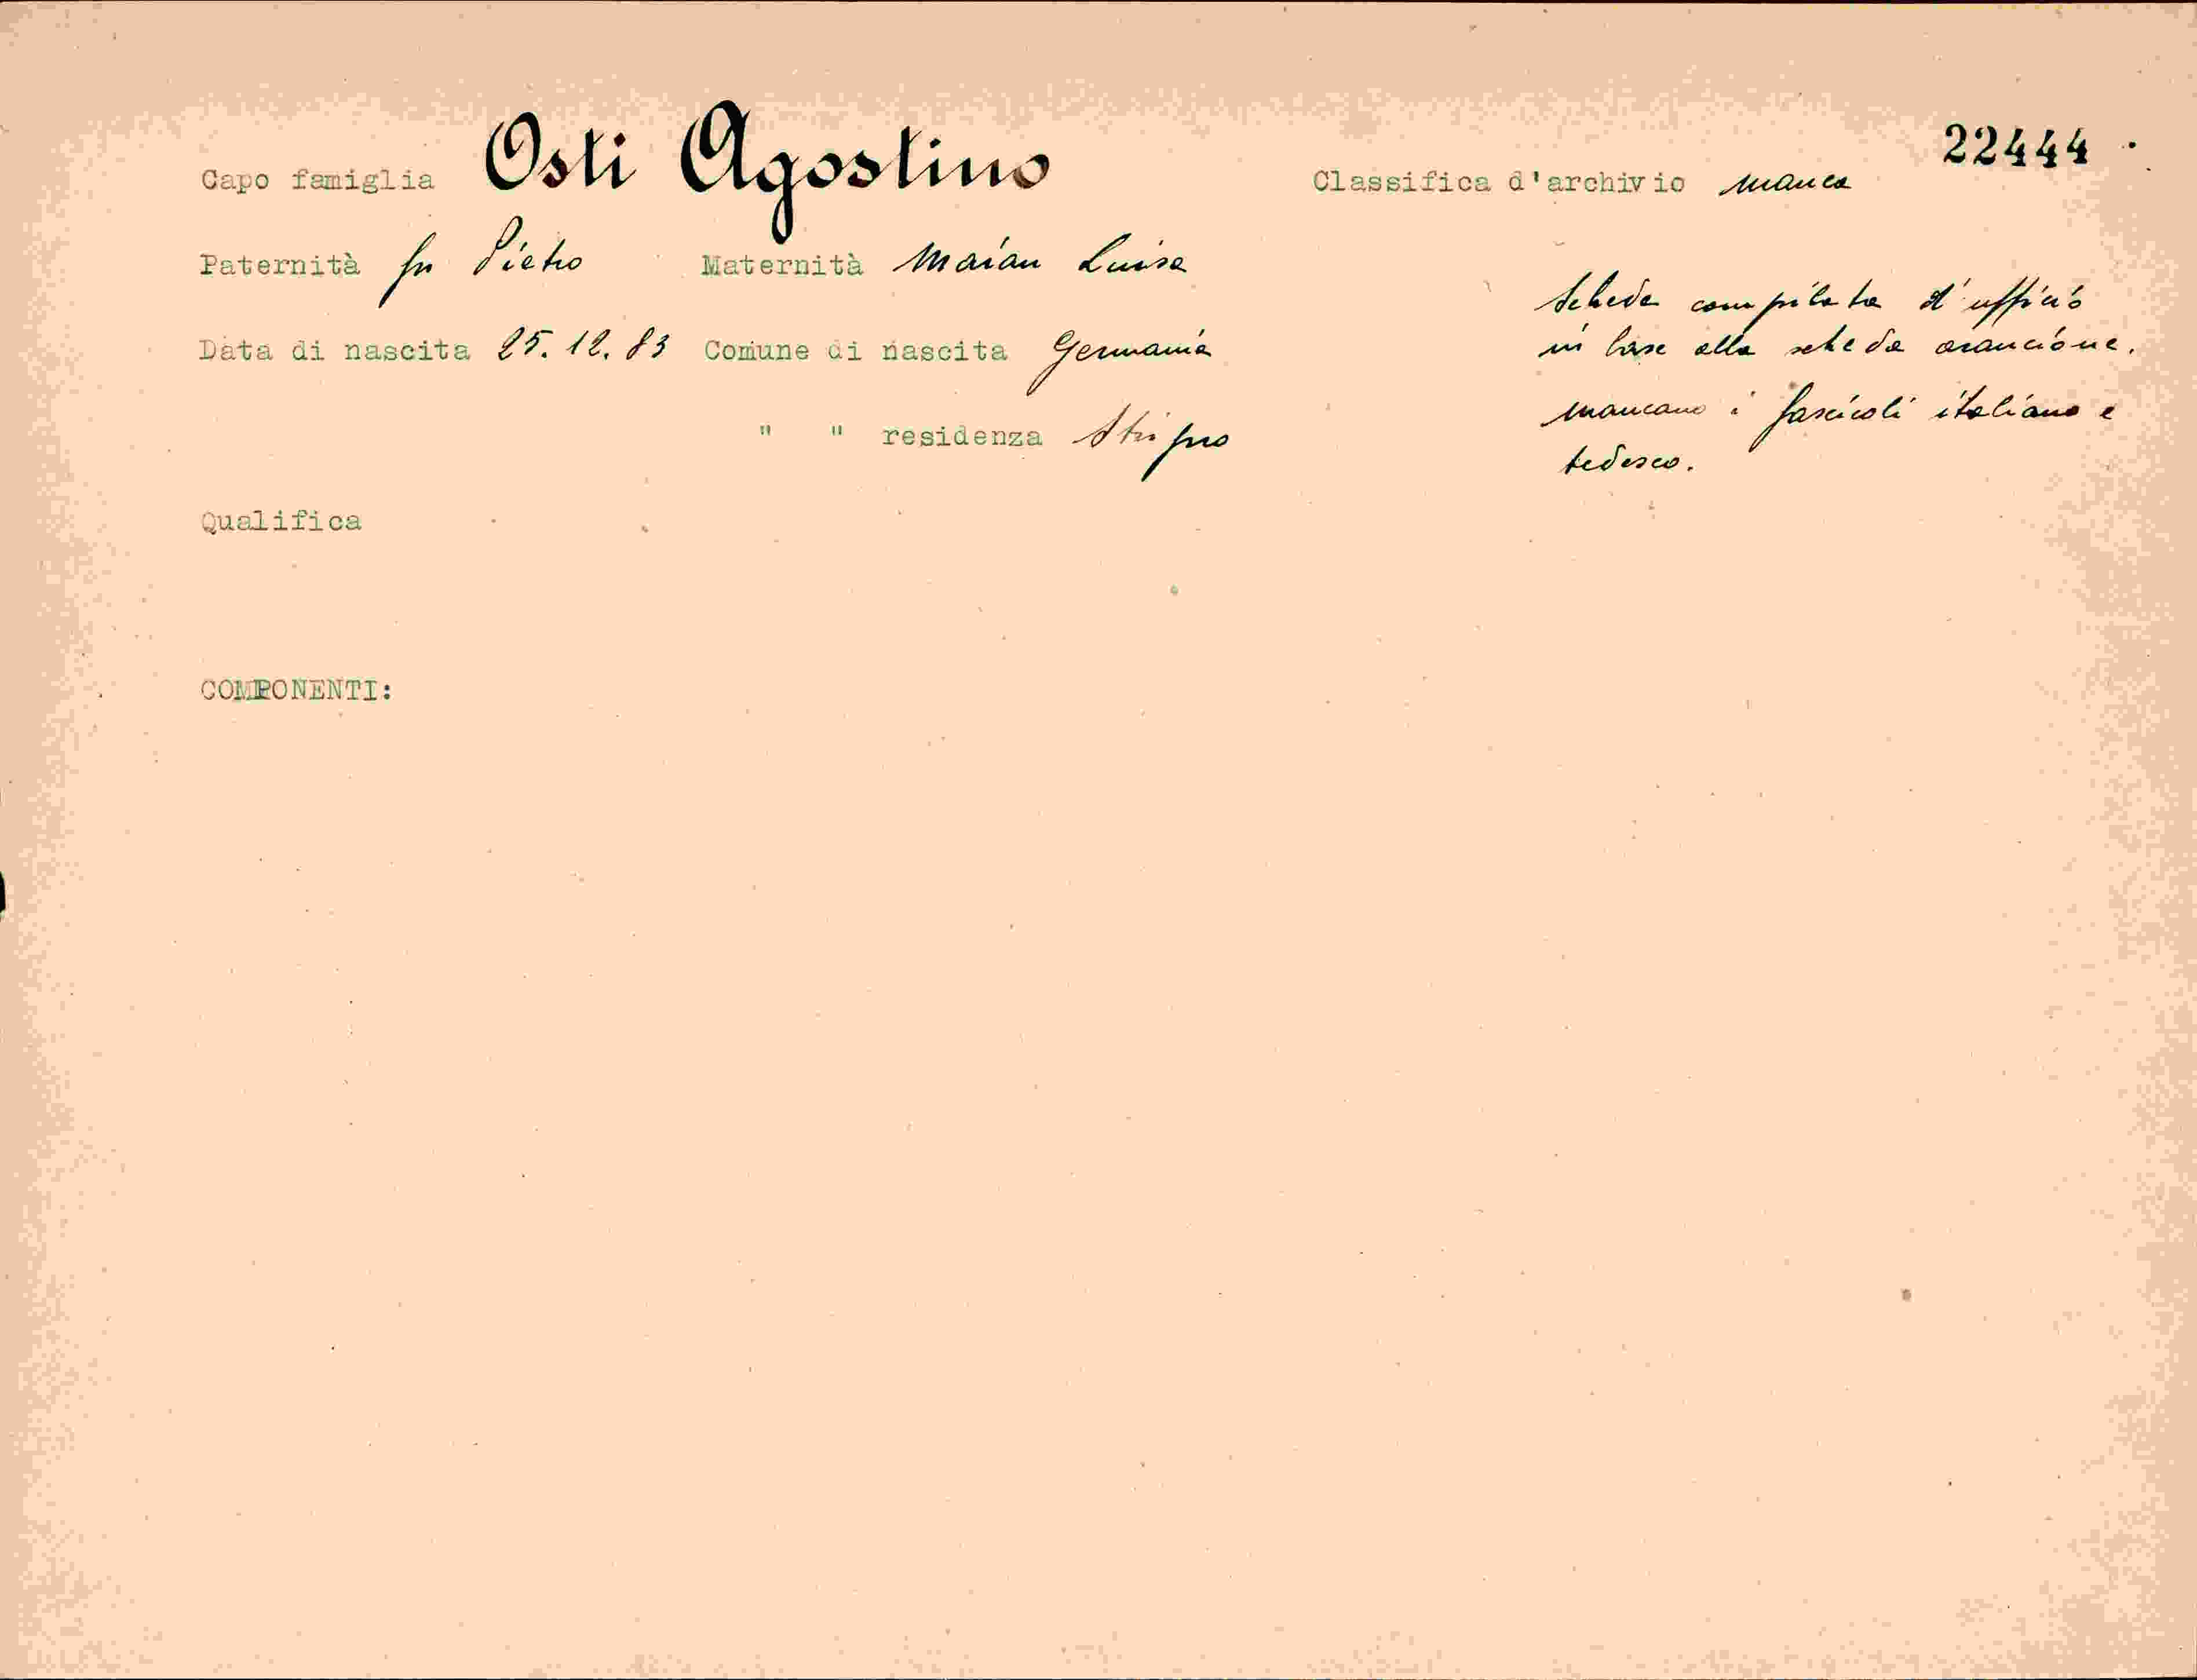 22444
Capo famiglia Osti Agostino Classifica d'archivio manca
Paternità fu Pietro Maternità Maian Luisa
Data di nascita 25.12.83 Comune di nascita Germania
" " residenza Strigno
Scheda compilata d'ufficio
in base alla scheda arancione.
mancano i fascicoli italiano e
tedesco.
Qualifica
COMPONENTI: